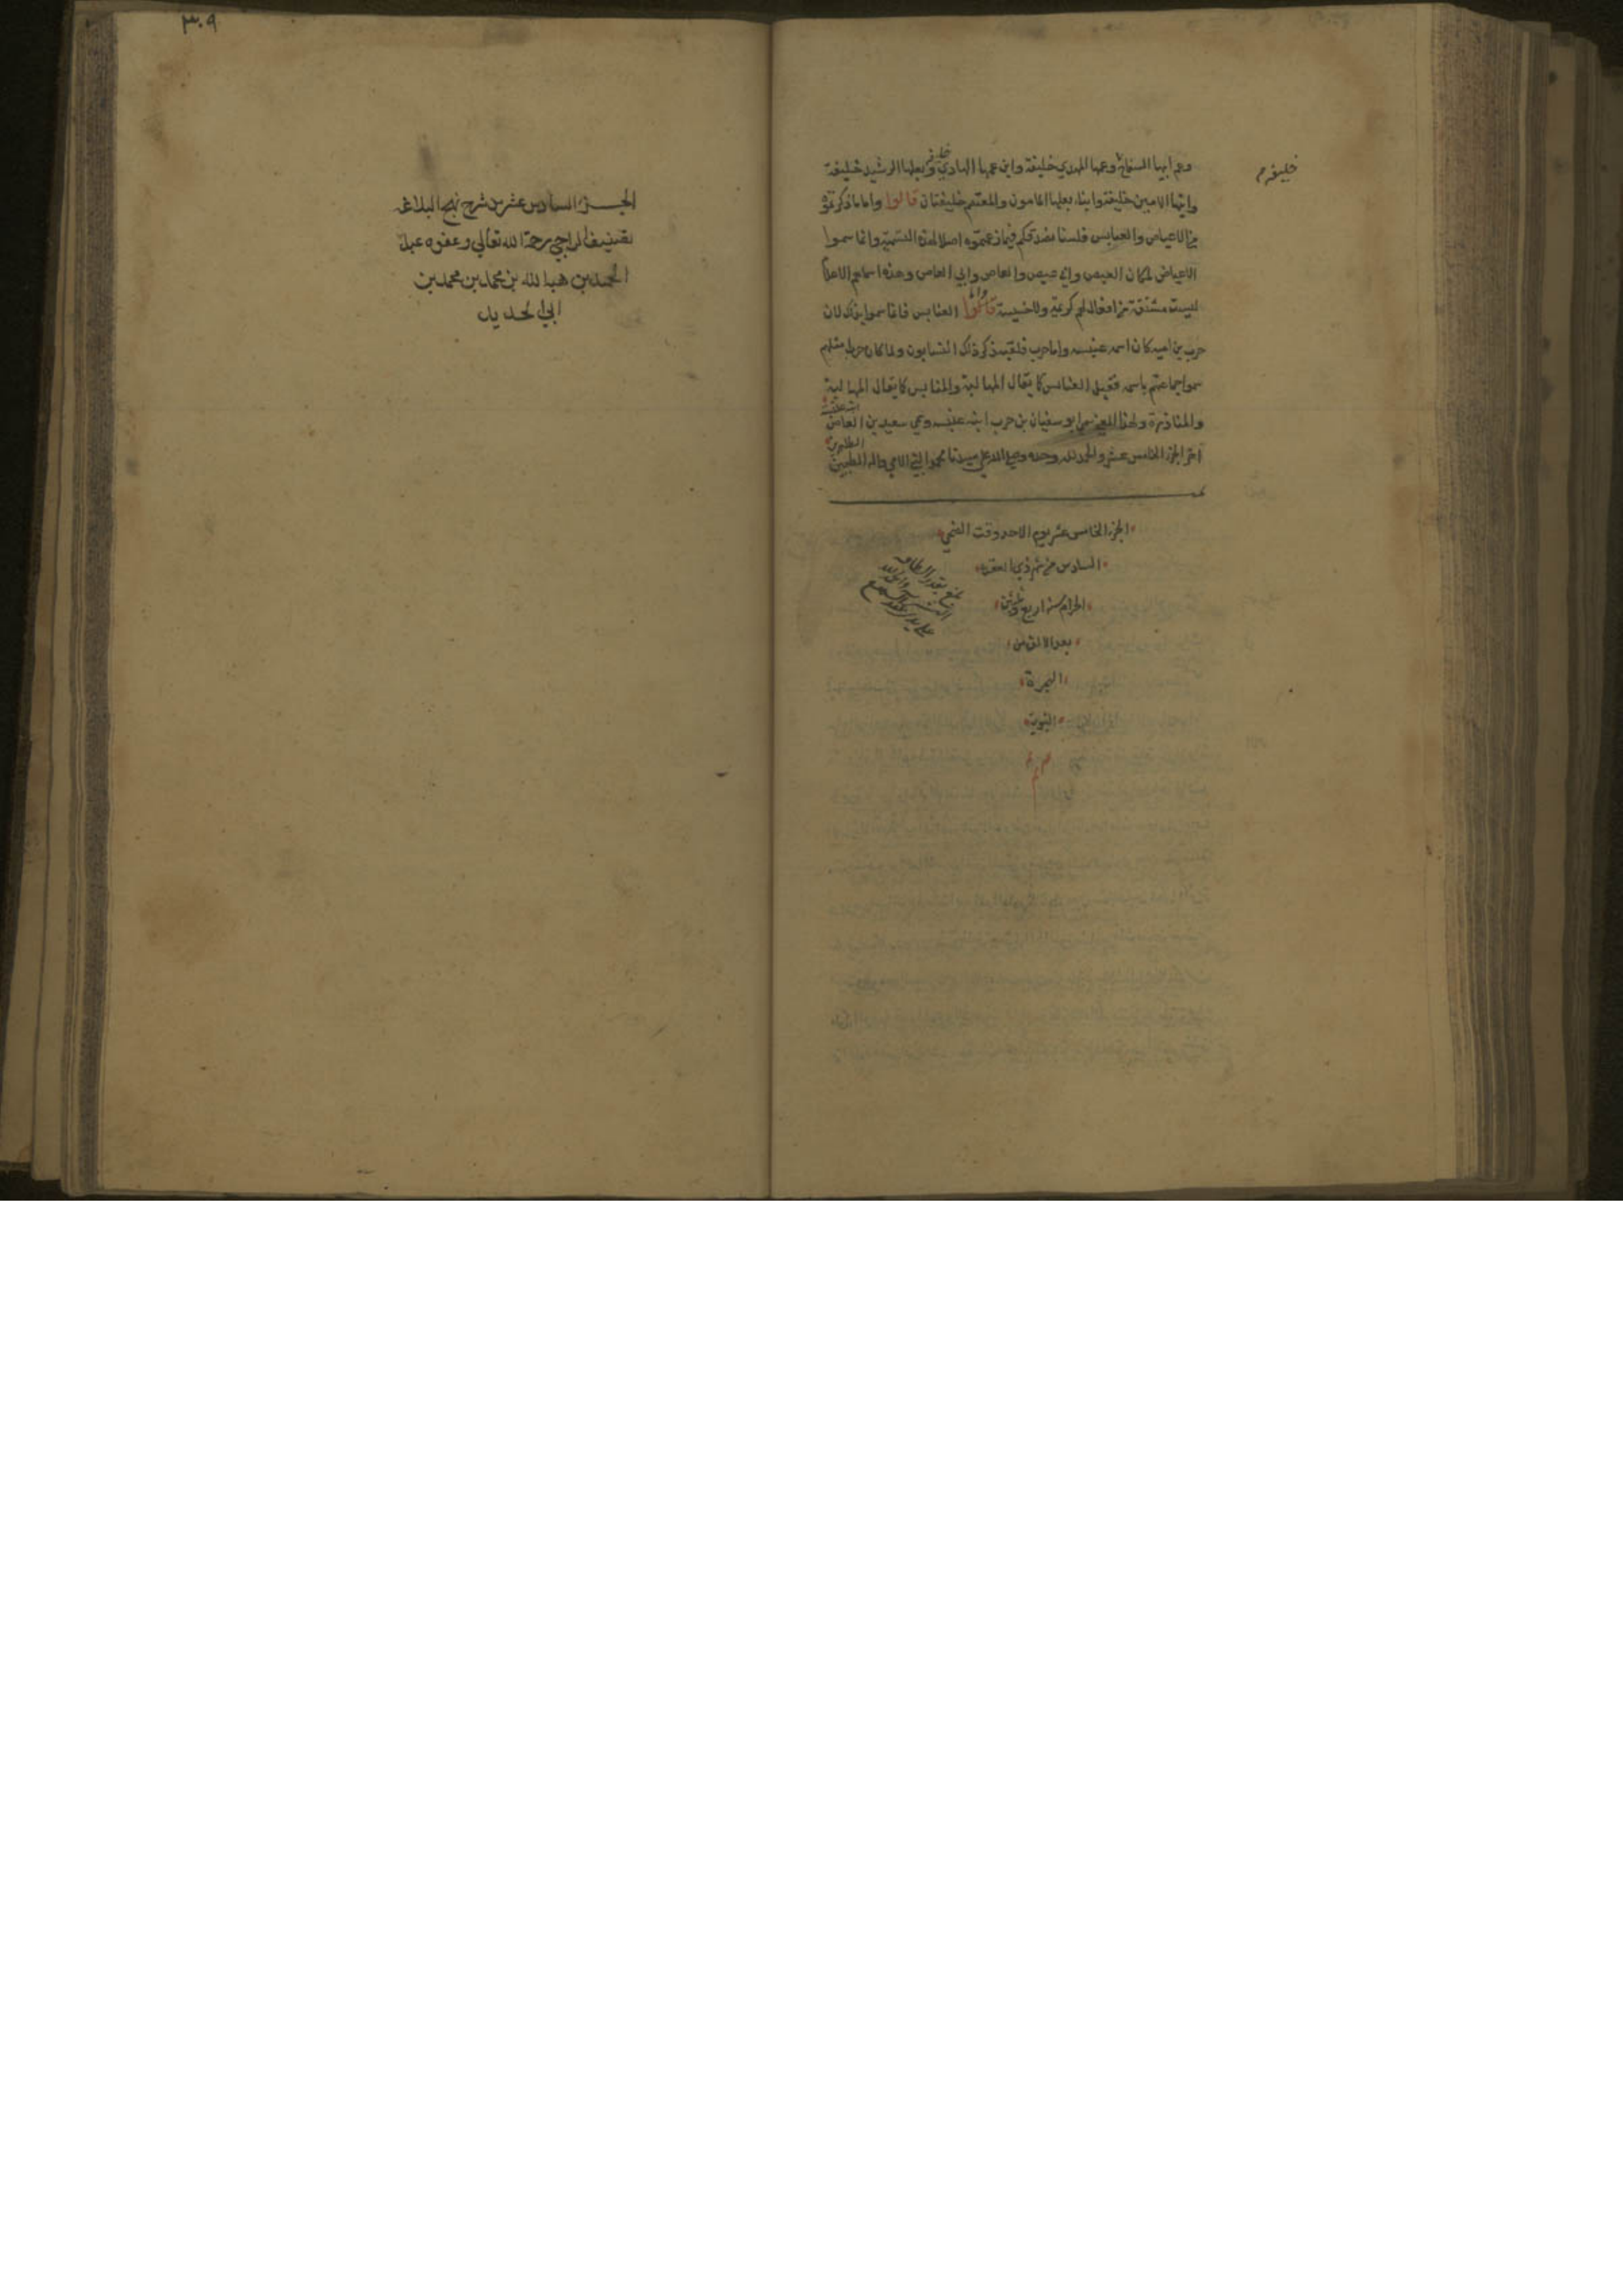 وعم ابيها السفاح وعمها المهدي خليفة وابن عمها الهادي خليفة وبعلها الرشيد خليفة
خليفة م
وابنها الامين خليفة وابنا بعلها المامون والمعتصم خليفتان قالوا واما ما ذكرتموه
من الاعياص والعنابس فلسنا نصدقكم فيما زعمتموه اصلا لهذه التسمية وانما سموا
الاعياص لمكان العيص وابي عيص والعاص وابي العاص وهذه اسماهم الاعلام
ليست مشتقة من افعال لهم كريمة ولا خسيسة قالوا واما العنابس فانما سموا بذلك لان
حرب بن امية كان اسمه عنبسه واما حرب فلقبه ذكر ذلك النسابون ولما كان حرب امثلهم
سموا جماعتهم باسمه فقيل العنابس كما يقال المهالبة والمنابس كما يقال المهالبة
والمناذرة ولهذا المعني سمي ابو سفيان بن حرب ابنه عنبسه وسمي سعيد بن العاص
ابنه عنبسه
اخر الجزء الخامس عشر والحمد لله وحده وصلى الله علي سيدنا محمد النبي الامي واله الطيبين
الطاهرين
الجزء الخامس عشر يوم الاحد وقت الضحي
السادس من شهر ذي القعدة
الحرام سنه اربع وثلثين
بعد الالف من
الهجرة
النبوية
م م م
بلغ بقدر الطاقة
٣٠٩
الجزء السادس عشر من شرح نهج البلاغه
تصنيف الراجي رحمة الله تعالي وعفوه عبد
الحميد بن هبة الله بن محمد بن محمد بن
ابي الحديد